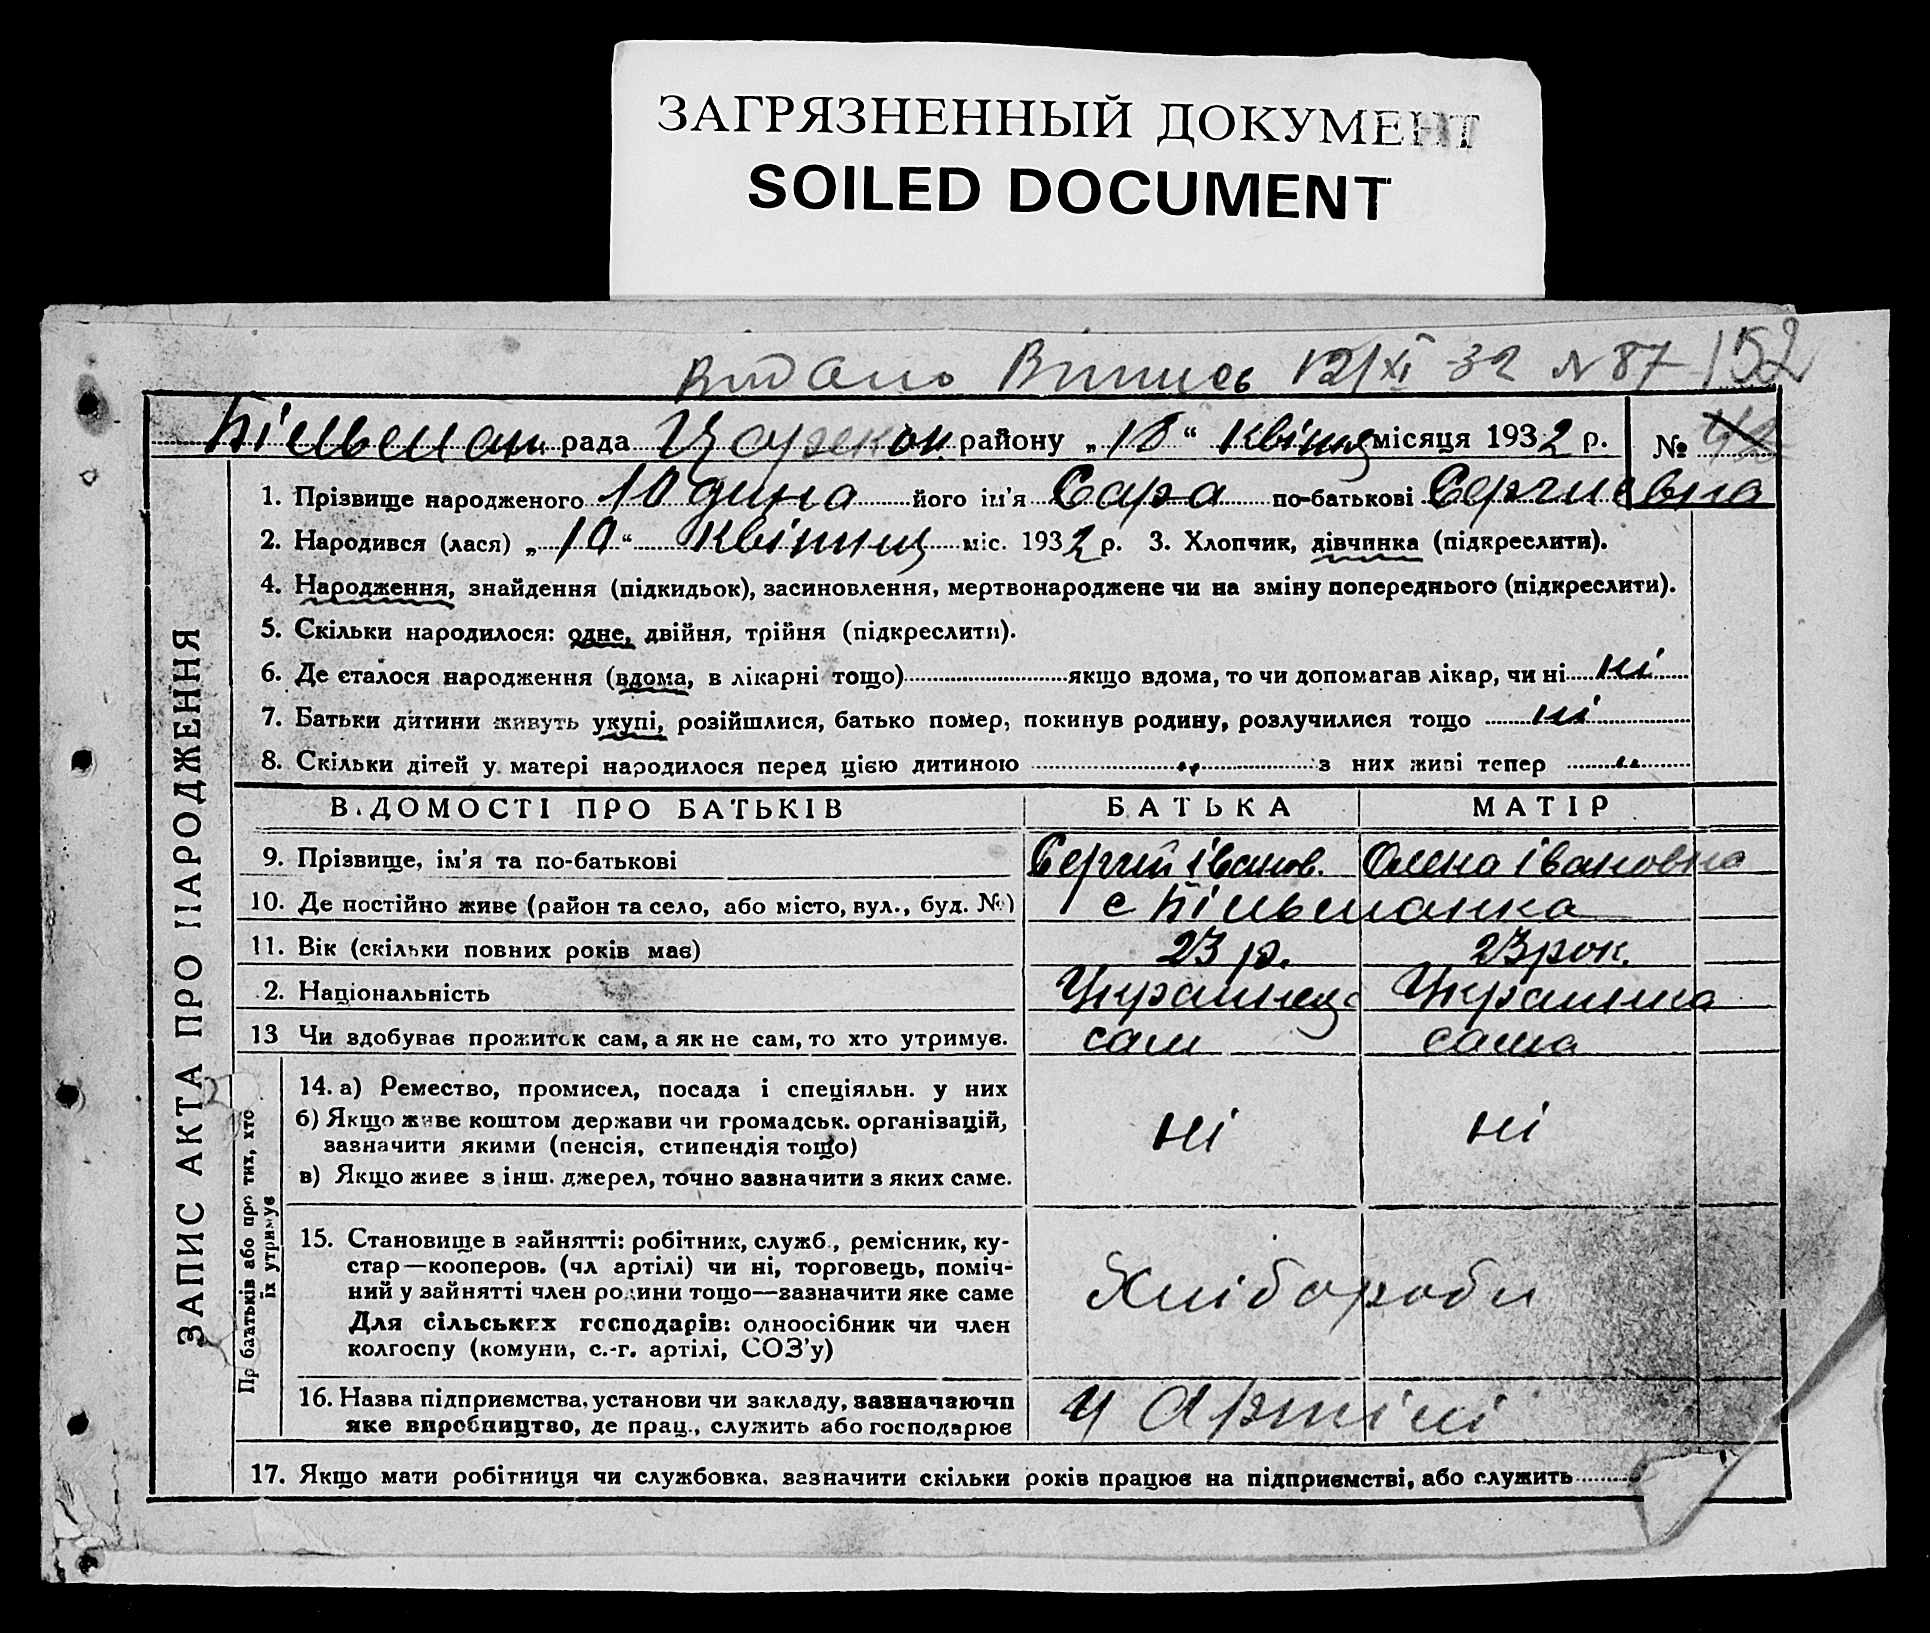 ЗАГРЯЗНЕННЫЙ ДОКУМЕНТ
SOILED DOCUMENT
Видано Випись 12/XI 32 N 87 152
рада району „18“ квітня місяця 1932 р. №
1. Прізвище народженого Юдина його ім'я Сара по-батькові Сергиевна
2. Народився (лася) „10“ квітня міс. 1932 р. 3. Хлопчик, дівчинка (підкреслити).
4. Народження, знайдення (підкидьок), засиновлення, мертвонароджене чи на зміну попереднього (підкреслити).
5. Скільки народилося: одне, двійня, трійня (підкреслити).
6. Де сталося народження (вдома, в лікарні тощо) якщо вдома, то чи допомагав лікар, чи ні ні
7. Батьки дитини живуть укупі, розійшлися, батько помер, покинув родину, розлучилися тощо ні
8. Скільки дітей у матері народилося перед цією дитиною „ з них живі тепер „
В.ДОМОСТІ ПРО БАТЬКІВ БАТЬКА МАТІР
9. Прізвище, ім'я та по-батькові Сергій Іванов. Олена Івановна
10. Де постійно живе (район та село, або місто, вул., буд. №) с Кільманка
11. Вік (скільки повних років має) 23 р. 23 рок.
2. Національність Украинець Украинка
13 Чи здобуває прожиток сам, а як не сам, то хто утримує. сам сама
14. а) Ремество, промисел, посада і спеціяльн. у них
б) Якщо живе коштом держави чи громадськ. організацій,
зазначити якими (пенсія, стипендія тощо) ні ні
в) Якщо живе з інш. джерел, точно зазначити з яких саме.
15. Становище в зайнятті: робітник, служб., ремісник, ку-
стар—кооперов. (чл артілі) чи ні, торговець, поміч-
ний у зайнятті член родини тощо—зазначити яке саме Хлібороби
Для сільських господарів: одноосібник чи член
колгоспу (комуни, с.-г. артілі, СОЗ'у)
16. Назва підприємства, установи чи закладу, зазначаючи
яке виробництво, де прац., служить або господарює у Артілі
17. Якщо мати робітниця чи службовка, зазначити скільки років працює на підприємстві, або служить
ЗАПИС АКТА ПРО НАРОДЖЕННЯ
Пр батьків або про тих, хто
їх утримує